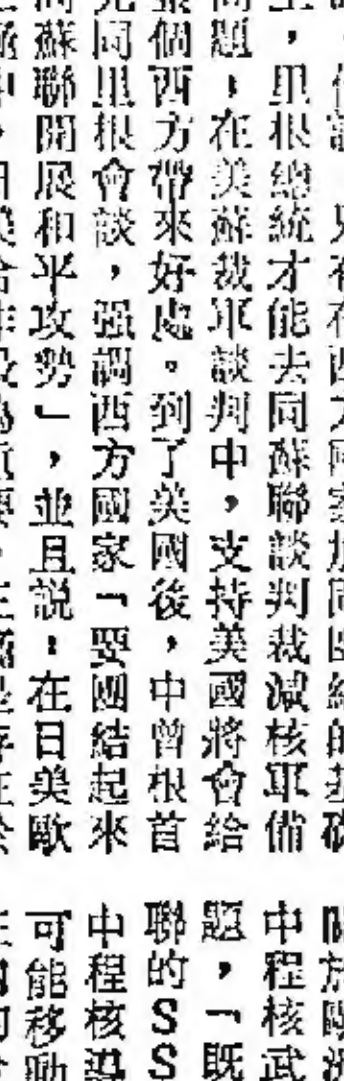 ，里根總統才能去同蘇聯談判裁減核軍備
問題，在美蘇裁軍談判中，支持美國將會給
個西方帶來好處。到了美國後，中曾根首
同里根會談，強調西方國家「要團結起來
蘇聯開展和平攻勢」，並且説：在日美歐
中程核武
題，「既
聯的SS
中程核導
可能移動